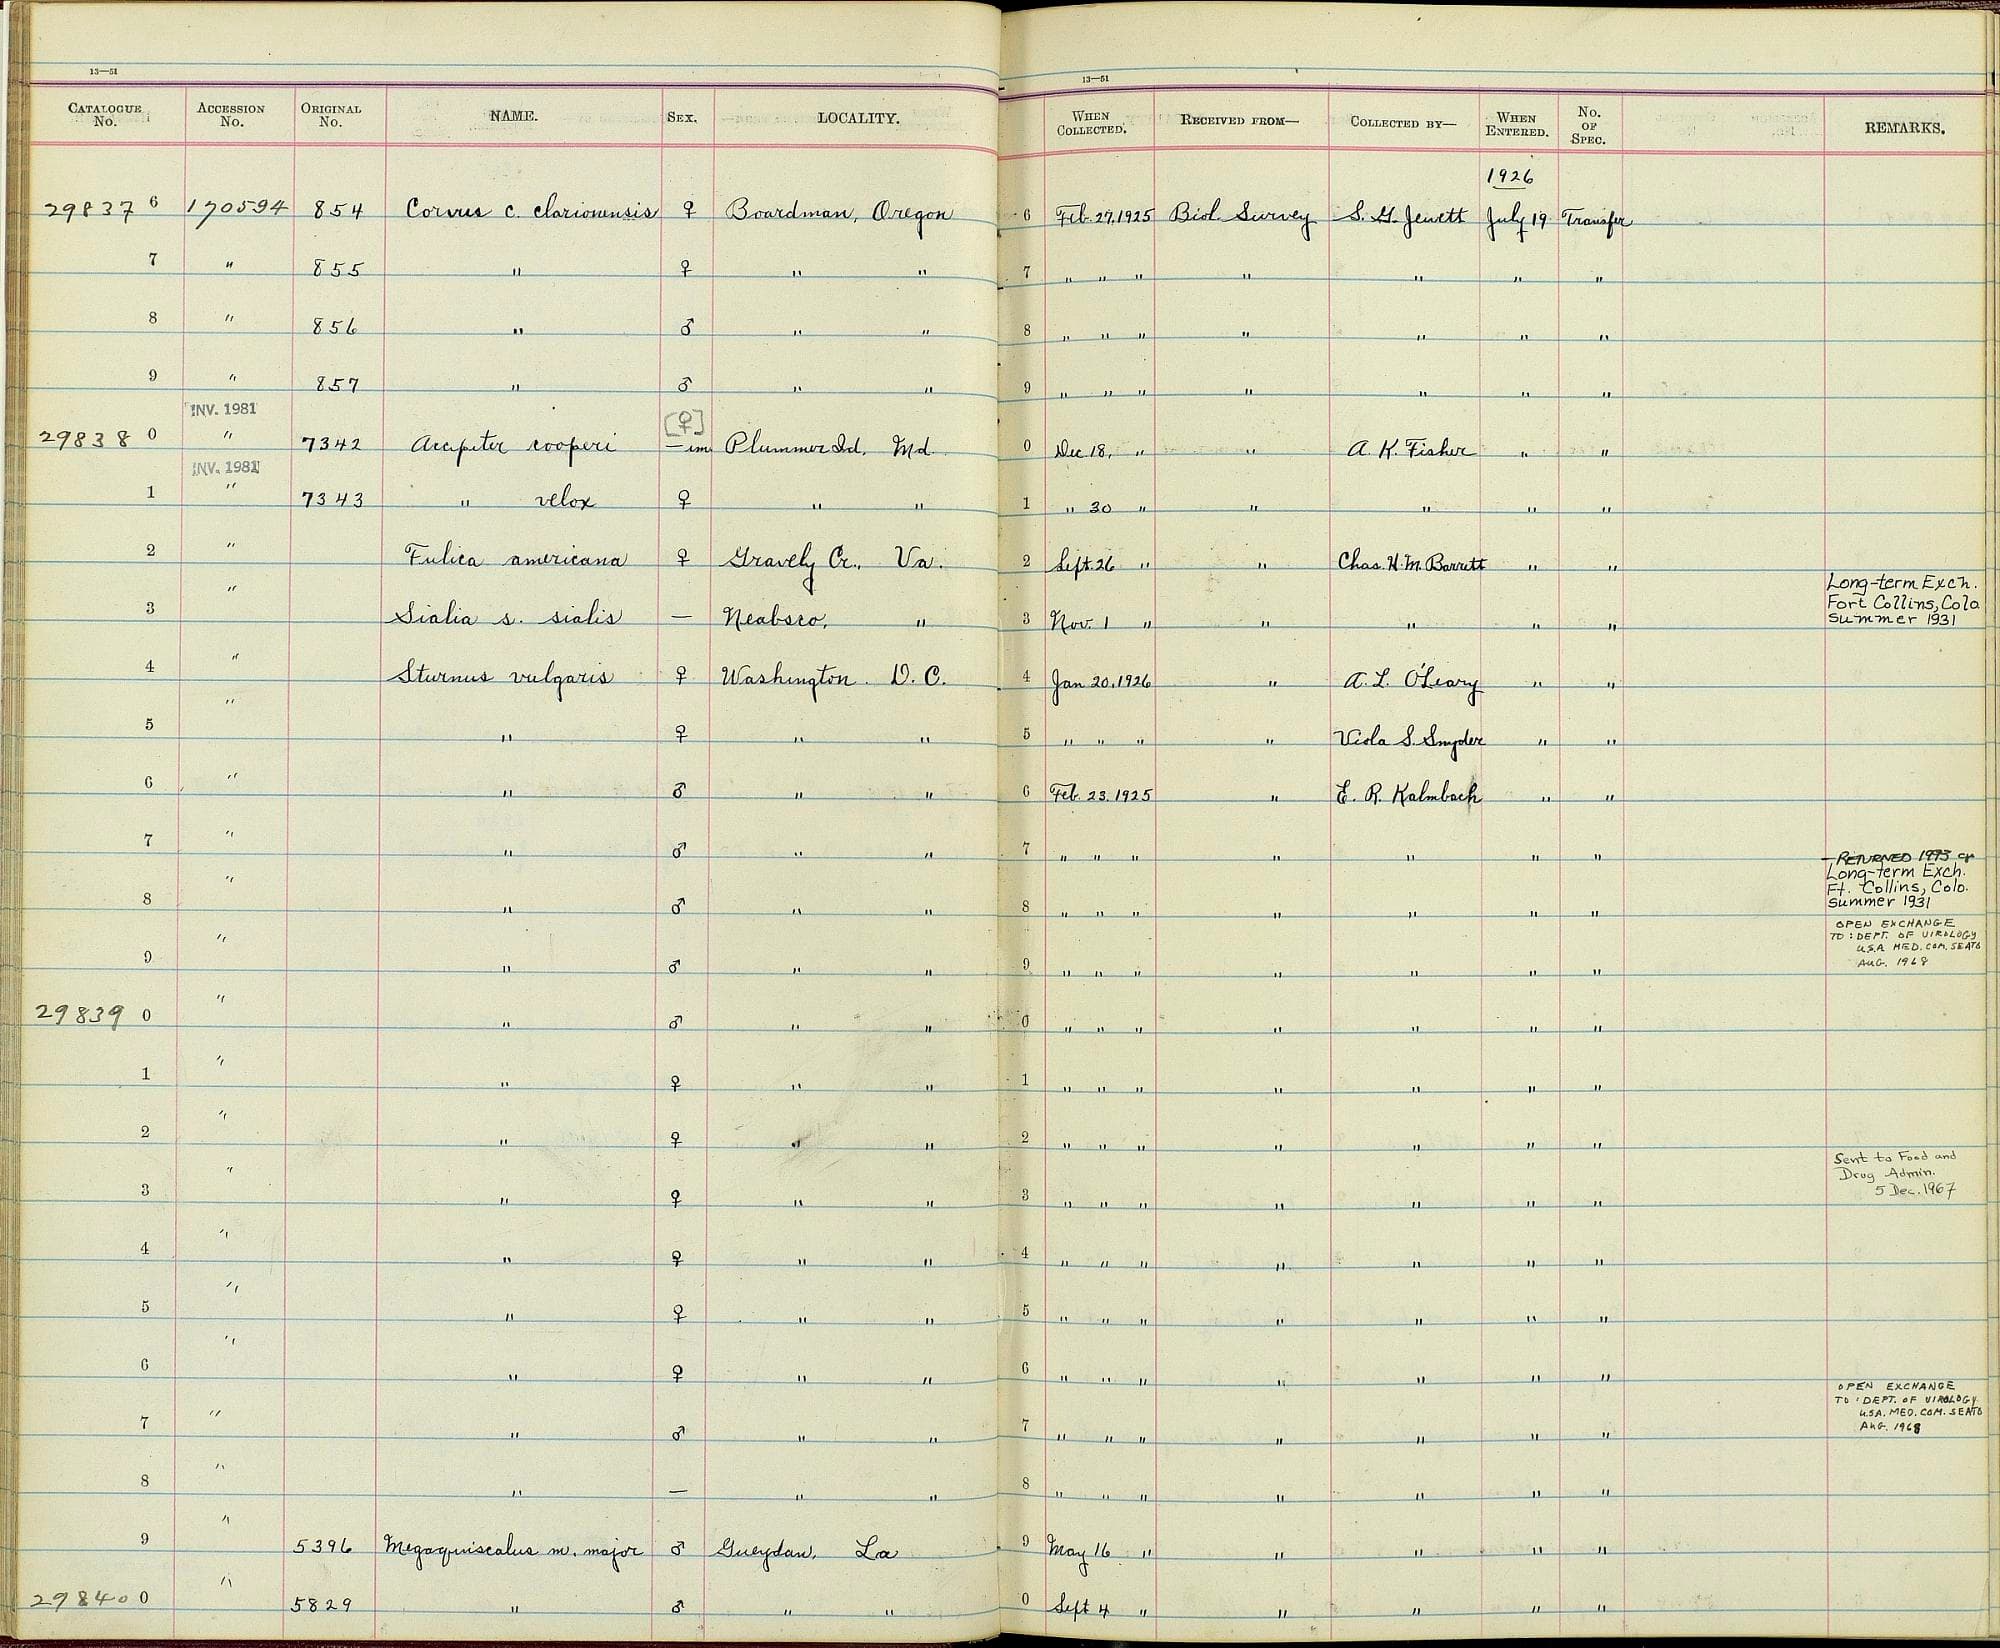 13—51
13—51
CATALOGUE No. ACCESSION No. ORIGINAL No. NAME. SEX. LOCALITY. WHEN COLLECTED. RECEIVED FROM— COLLECTED BY— WHEN ENTERED. No. OF SPEC. REMARKS.
1926
29837 6 170594 854 Corvus c. clarionensis ♀ Boardman, Oregon 6 Feb. 27, 1925 Biol. Survey S. G. Jewett July 19 Transfer
7 " 855 " ♀ " " 7 " " " " " " "
8 " 856 " ♂ " " 8 " " " " " " "
9 " 857 " ♂ " " 9 " " " " " " "
INV. 1981 [♀]
29838 0 " 7342 Accipiter cooperi — im Plummer Id. Md. 0 Dec 18, " " A. K. Fisher " "
INV. 1981
1 " 7343 " velox ♀ " " 1 " 30 " " " " "
2 " Fulica americana ♀ Gravely Cr., Va. 2 Sept. 26 " " Chas. H. M. Barrett " "
3 " Sialia s. sialis — Neabsco, " 3 Nov. 1 " " " " " Long-term Exch.
Fort Collins, Colo
Summer 1931
4 " Sturnus vulgaris ♀ Washington D. C. 4 Jan 20, 1926 " A. L. O'Leary " "
5 " " ♀ " " 5 " " " " Viola S. Snyder " "
6 " " ♂ " " 6 Feb. 23, 1925 " E. R. Kalmbach " "
7 " " ♂ " " 7 " " " " " " "
8 " " ♂ " " 8 " " " " " " " RETURNED 1973 or
Long-term Exch.
Ft. Collins, Colo.
Summer 1931
9 " " ♂ " " 9 " " " " " " " OPEN EXCHANGE
TO: DEPT. OF VIROLOGY
U.S.A MED. COM. SEATO
AUG. 1968
29839 0 " " ♂ " " 0 " " " " " " "
1 " " ♀ " " 1 " " " " " " "
2 " " ♀ " " 2 " " " " " " "
3 " " ♀ " " 3 " " " " " " " Sent to Food and
Drug Admin.
5 Dec. 1967
4 " " ♀ " " 4 " " " " " " "
5 " " ♀ " " 5 " " " " " " "
6 " " ♀ " " 6 " " " " " " "
7 " " ♂ " " 7 " " " " " " " OPEN EXCHANGE
TO: DEPT. OF VIROLOGY
U.S.A. MED. COM. SEATO
AUG. 1968
8 " " — " " 8 " " " " " " "
9 " 5396 Megaquiscalus m. major ♂ Gueydan, La 9 May 16 " " " " "
29840 0 " 5829 " ♂ " " 0 Sept 4 " " " " "